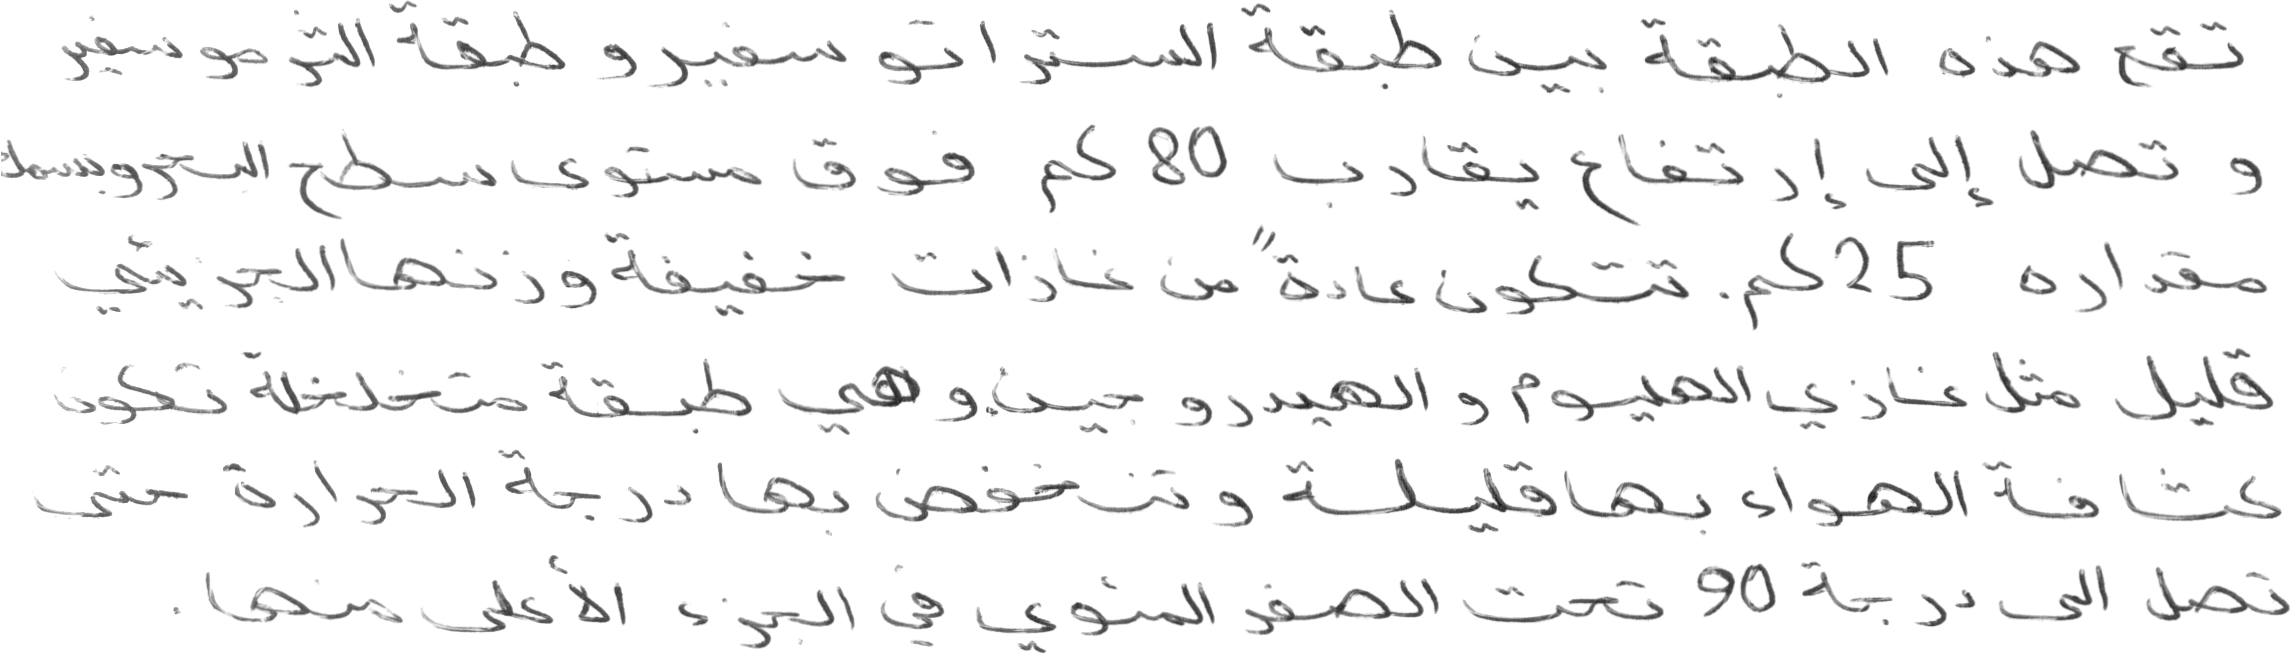 تقع هذه الطبقة بين طبقة الستراتوسفير و طبقة الثرموسفير
و تصل إلى إرتفاع يقارب 80 كم فوق مستوى سطح البحر وبسمك
مقداره 25 كم. تتكون عادةً من غازات خفيفة وزنها الجزيئي
قليل مثل غازي الهليوم و الهيدروجين. و هي طبقة متخلخلة تكون
كثافة الهواء بها قليلة و تنخفض بها درجة الحرارة حتى
تصل الى درجة 90 تحت الصفر المئوي في الجزء الأعلى منها.